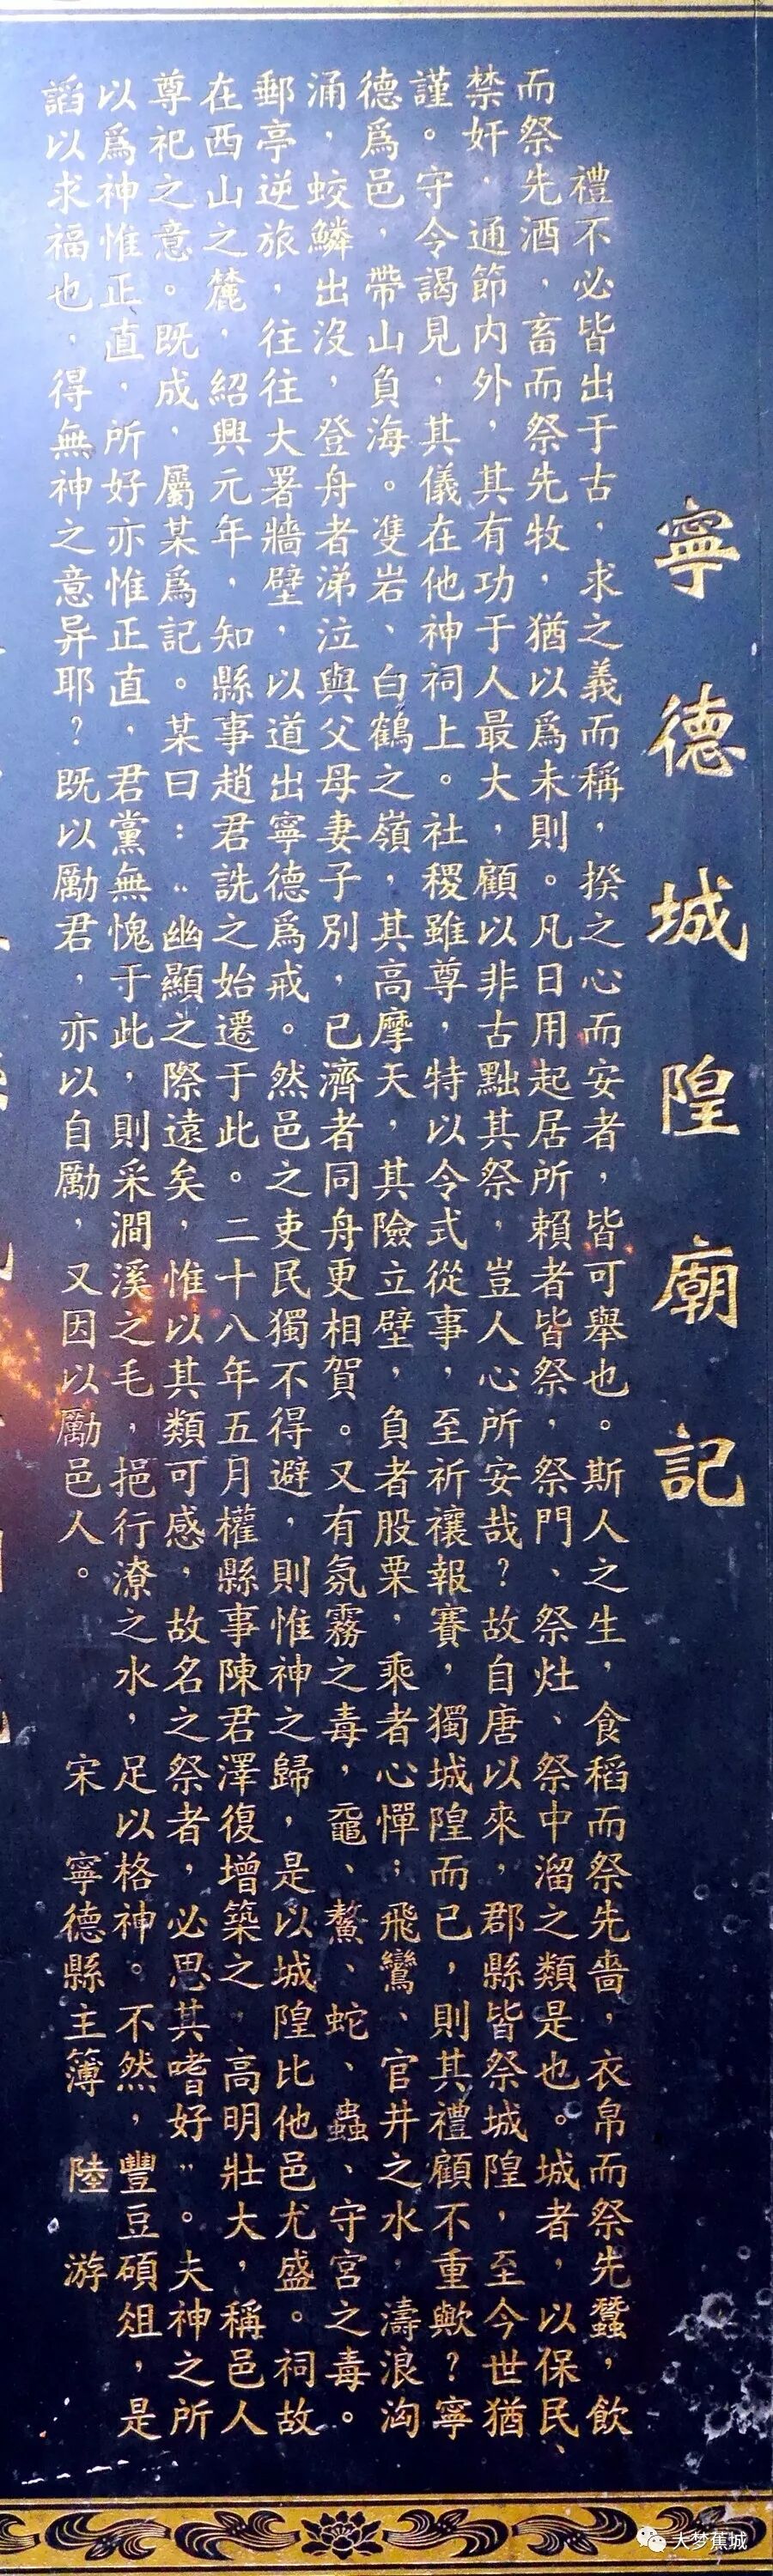 寧德城隍廟記
禮不必皆出于古，求之義而稱，揆之心而安者，皆可舉也。斯人之生，食稻而祭先嗇，衣帛而祭先蠶，飲
而祭先酒，畜而祭先牧，猶以爲未則。凡日用起居所賴者皆祭，祭門、祭灶、祭中溜之類是也。城者，以保民、
禁奸，通節内外，其有功于人最大，顧以非古黜其祭，豈人心所安哉？故自唐以來，郡縣皆祭城隍，至今世猶
謹。守令謁見，其儀在他神祠上。社稷雖尊，特以令式從事，至祈禳報賽，獨城隍而已，則其禮顧不重歟？寧
德爲邑，帶山負海。雙岩、白鶴之嶺，其高摩天，其險立壁，負者股栗，乘者心憚；飛鸞、官井之水，濤浪洶
涌，蛟鱗出沒，登舟者涕泣與父母妻子別，已濟者同舟更相賀。又有氛霧之毒，黿、鰲、蛇、蠱、守宮之毒。
郵亭逆旅，往往大署牆壁，以道出寧德爲戒。然邑之吏民獨不得避，則惟神之歸，是以城隍比他邑尤盛。祠故
在西山之麓，紹興元年，知縣事趙君詵之始遷于此。二十八年五月權縣事陳君澤復增築之，高明壯大，稱邑人
尊祀之意。既成，屬某爲記。某曰：“幽顯之際遠矣，惟以其類可感，故名之祭者，必思其嗜好”。夫神之所
以爲神惟正直，所好亦惟正直，君黨無愧于此，則采澗溪之毛，挹行潦之水，足以格神。不然，豐豆碩俎，是
謟以求福也，得無神之意异耶？既以勵君，亦以自勵，又因以勵邑人。
宋 寧德縣主簿 陸游
大梦蕉城